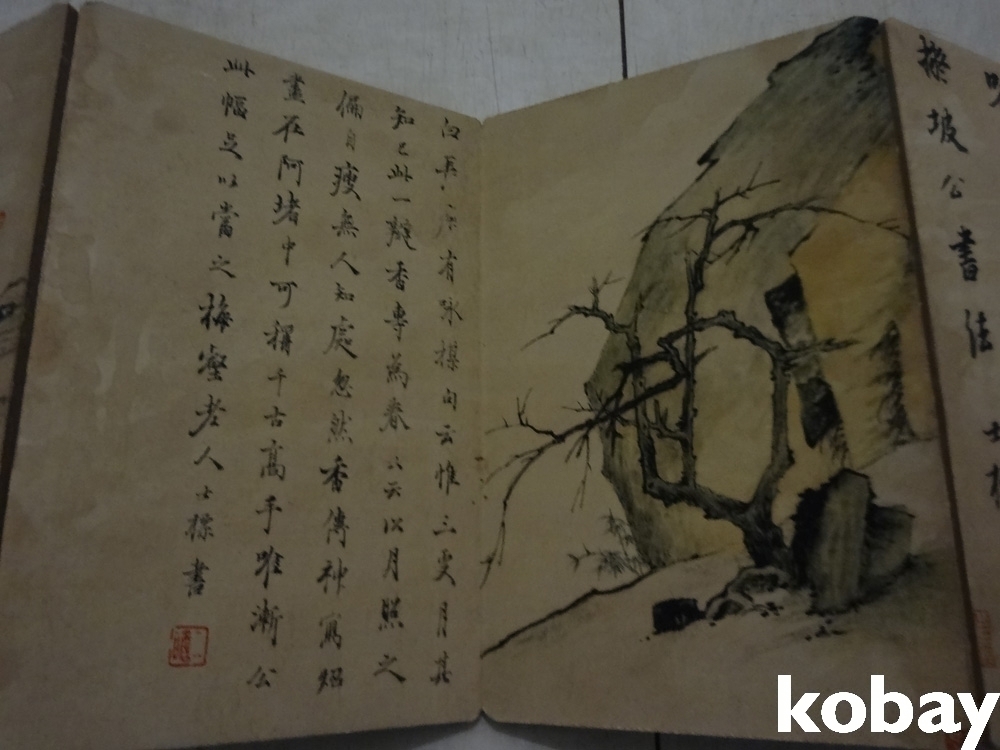 坡公書法
有詠楳句云惟三更月其
知己此一瓣香專為春〻云以月照之
偏自瘦無人知處忽然香傳神寫照
盡在阿堵中可稱千古高手唯漸公
此幅足以當之梅壑老人士標書
kobay